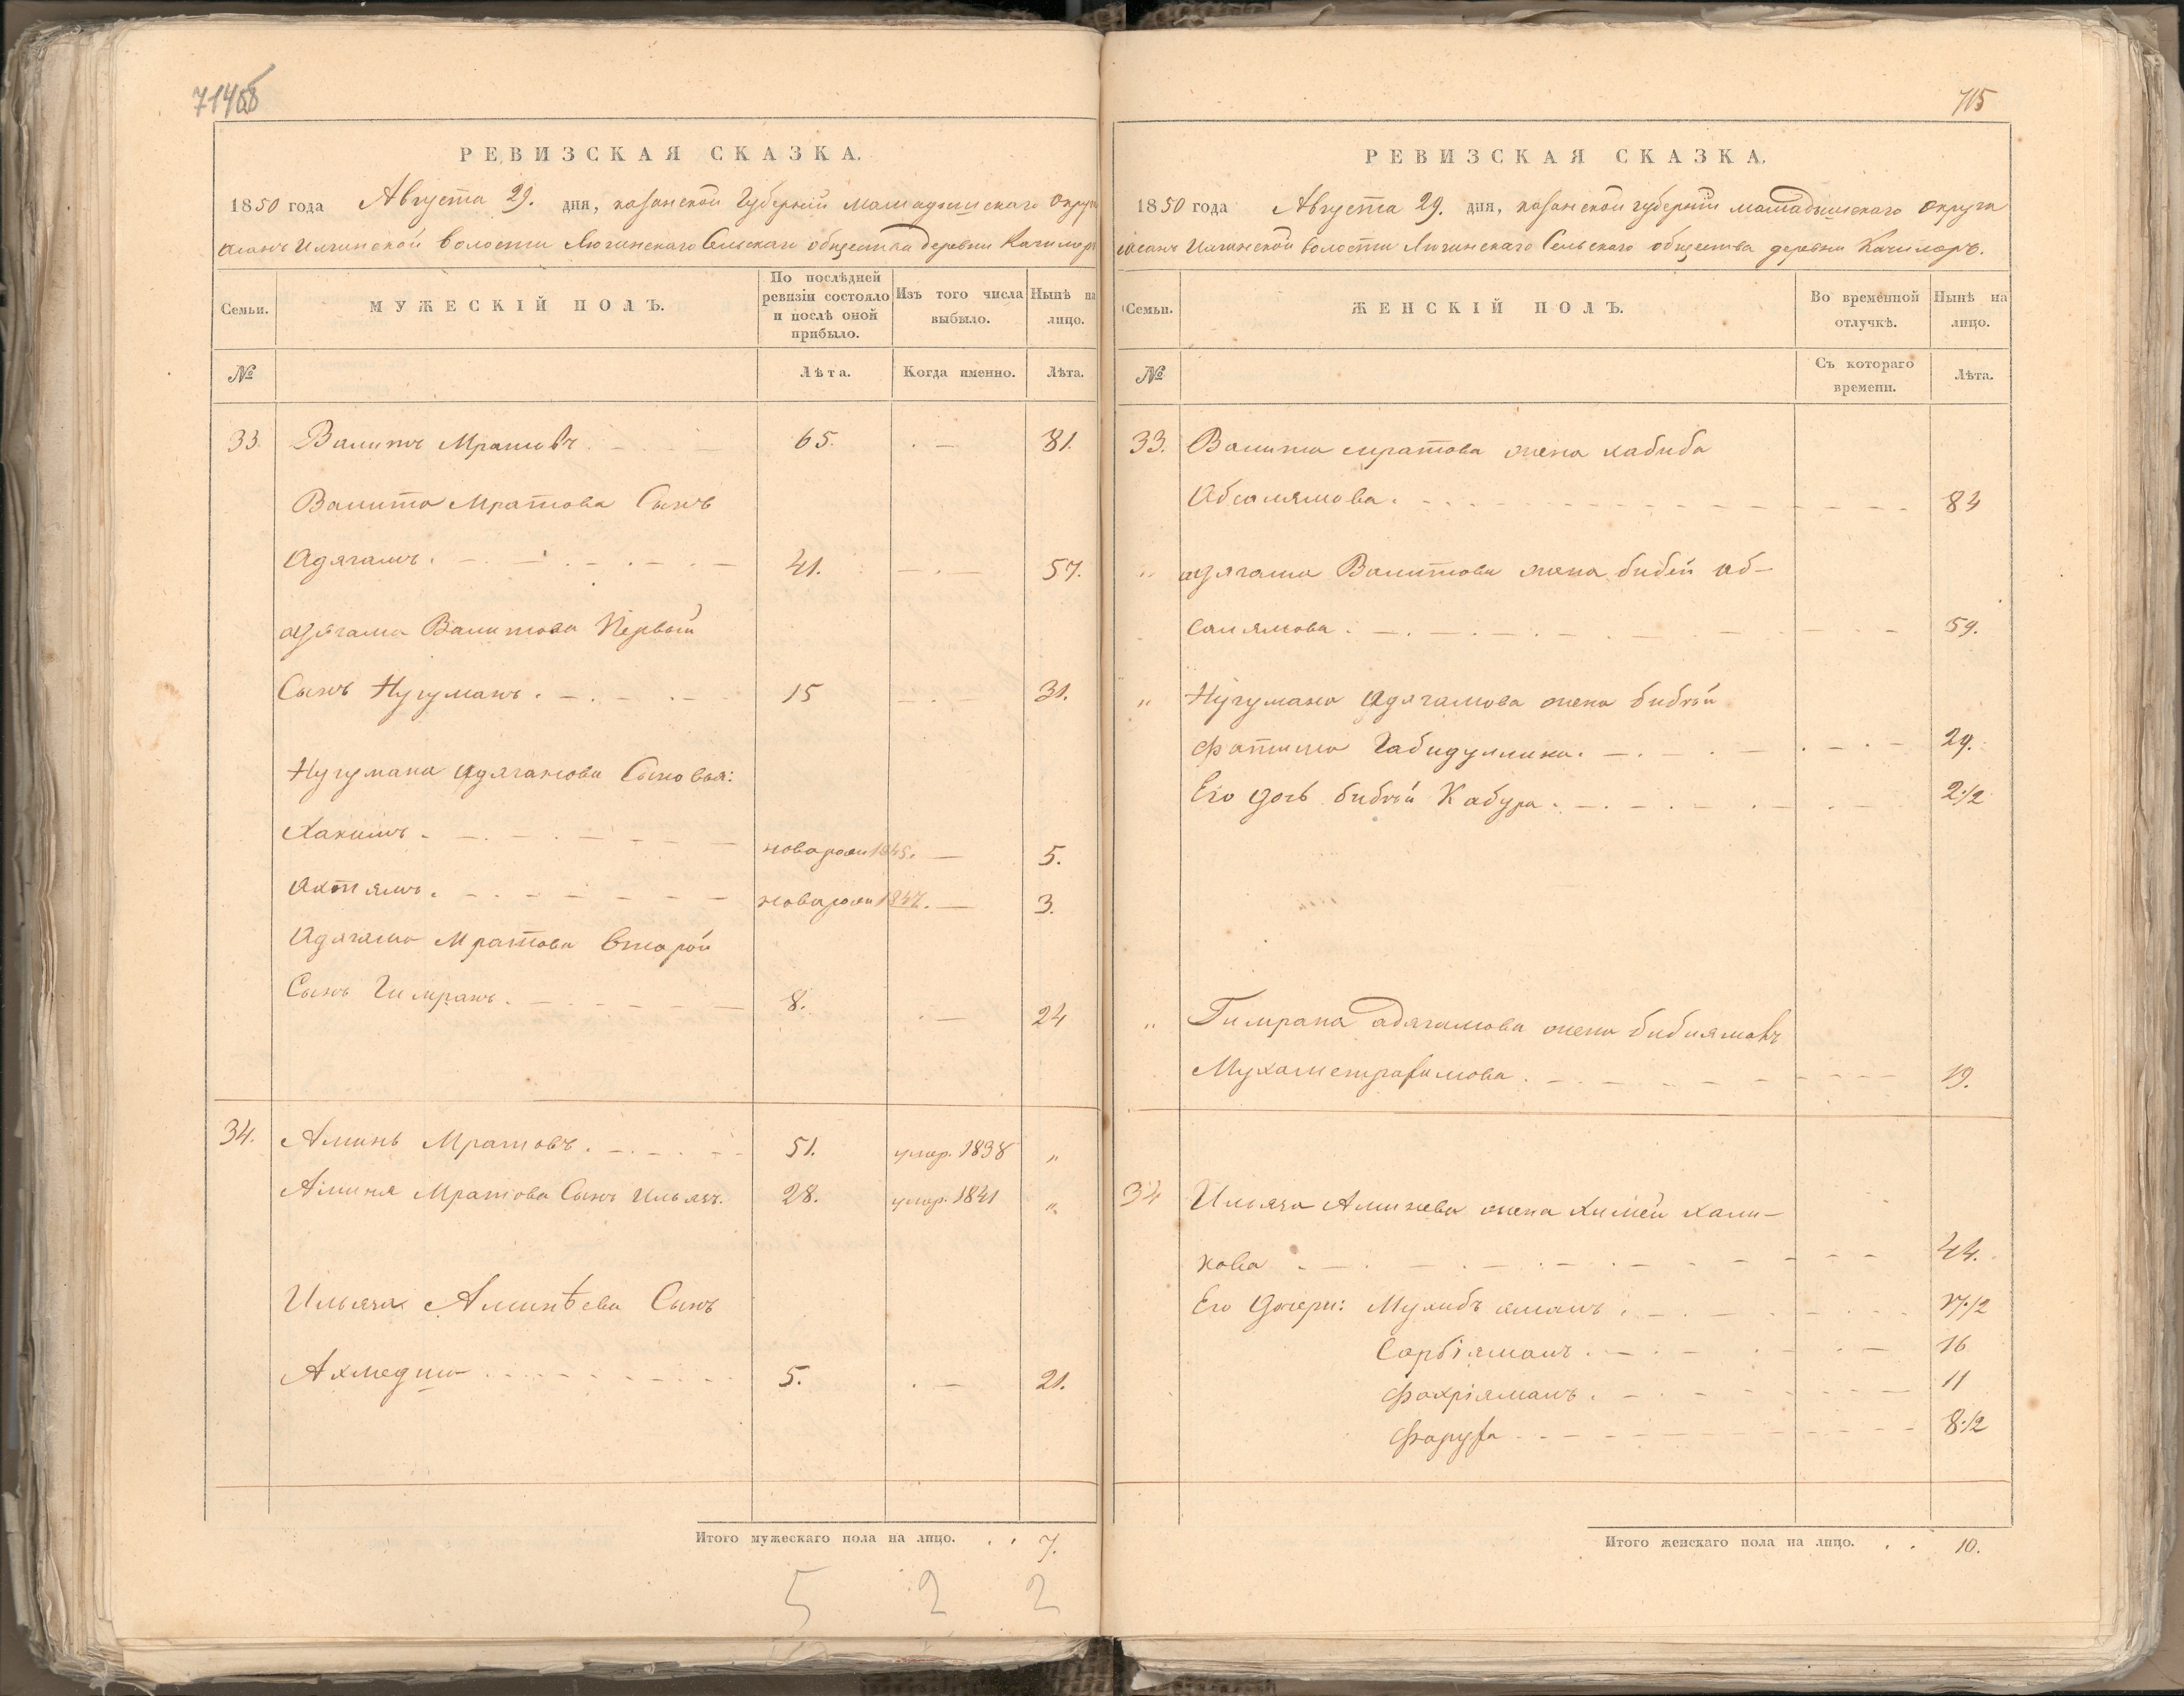 714об
РЕВИЗСКАЯ СКАЗКА.
1850 года Августа 29. дня, казанской Губерніи мамадышскаго округа
асанъ Илгинской Волости Лючинскаго Сельскаго общества деревни Качимеръ
Семьи.
МУЖЕСКІЙ ПОЛЪ.
По послѣдней ревизіи состояло и послѣ оной прибыло.
Изъ того числа выбыло.
Нынѣ на лицо.
№
Лѣта.
Когда именно.
Лѣта.
33. Валитъ Мратовъ 65. 81.
Валита Мратова Сынъ
Адягамъ. 41. 57.
адягама Валитова Первый
Сынъ Нугуманъ. 15 31.
Нугумана адягамова Сыновья:
Хакимъ новарожд 1845. 5.
Ахтямъ. новарожд 1847. 3.
Адягама Мратова Второй
Сынъ Гимранъ. 8. 24
34. Аминь Мратовъ. 51. умер. 1838 "
Аминя Мратова Сынъ Ильязъ. 28. умер. 1841 "
Ильяза Аминѣева Сынъ
Ахмедша 5. 21.
Итого мужескаго пола на лицо. . . 7.
5 2 2
715
РЕВИЗСКАЯ СКАЗКА.
1850 года Августа 29. дня, казанской губерніи мамадышскаго округа
асанъ Илгинской волости Лючинскаго Сельскаго общества деревни Качимеръ.
Семьи.
ЖЕНСКІЙ ПОЛЪ.
Во временной отлучкѣ.
Нынѣ на лицо.
№
Съ котораго времени.
Лѣта.
33. Валита мратова жена хабиба
Абсалямова. 84
" адягама Валитова жена бибеи аб-
салямова. 59.
" Нугумана адягамова жена бибъй
фатима Габидуллина. 29.
Его дочь бибъй Кабура. 2 1/2
" Гимрана адягамова жена бибиямалъ
Мухаметрахимова. 19.
34 Ильяза Аминева жена химей хали-
кова 44.
Его дочери: Мухибъ ямалъ. 17 1/2
Сарбіямалъ. 16
Фахріямалъ. 11
Фаруза 8 1/2
Итого женскаго пола на лицо. . . 10.